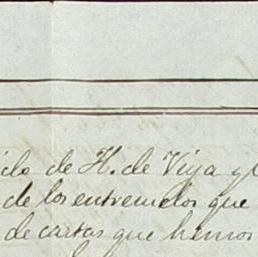 ido de H. de Vija y l
de los entremelos que
de cartas que hemos